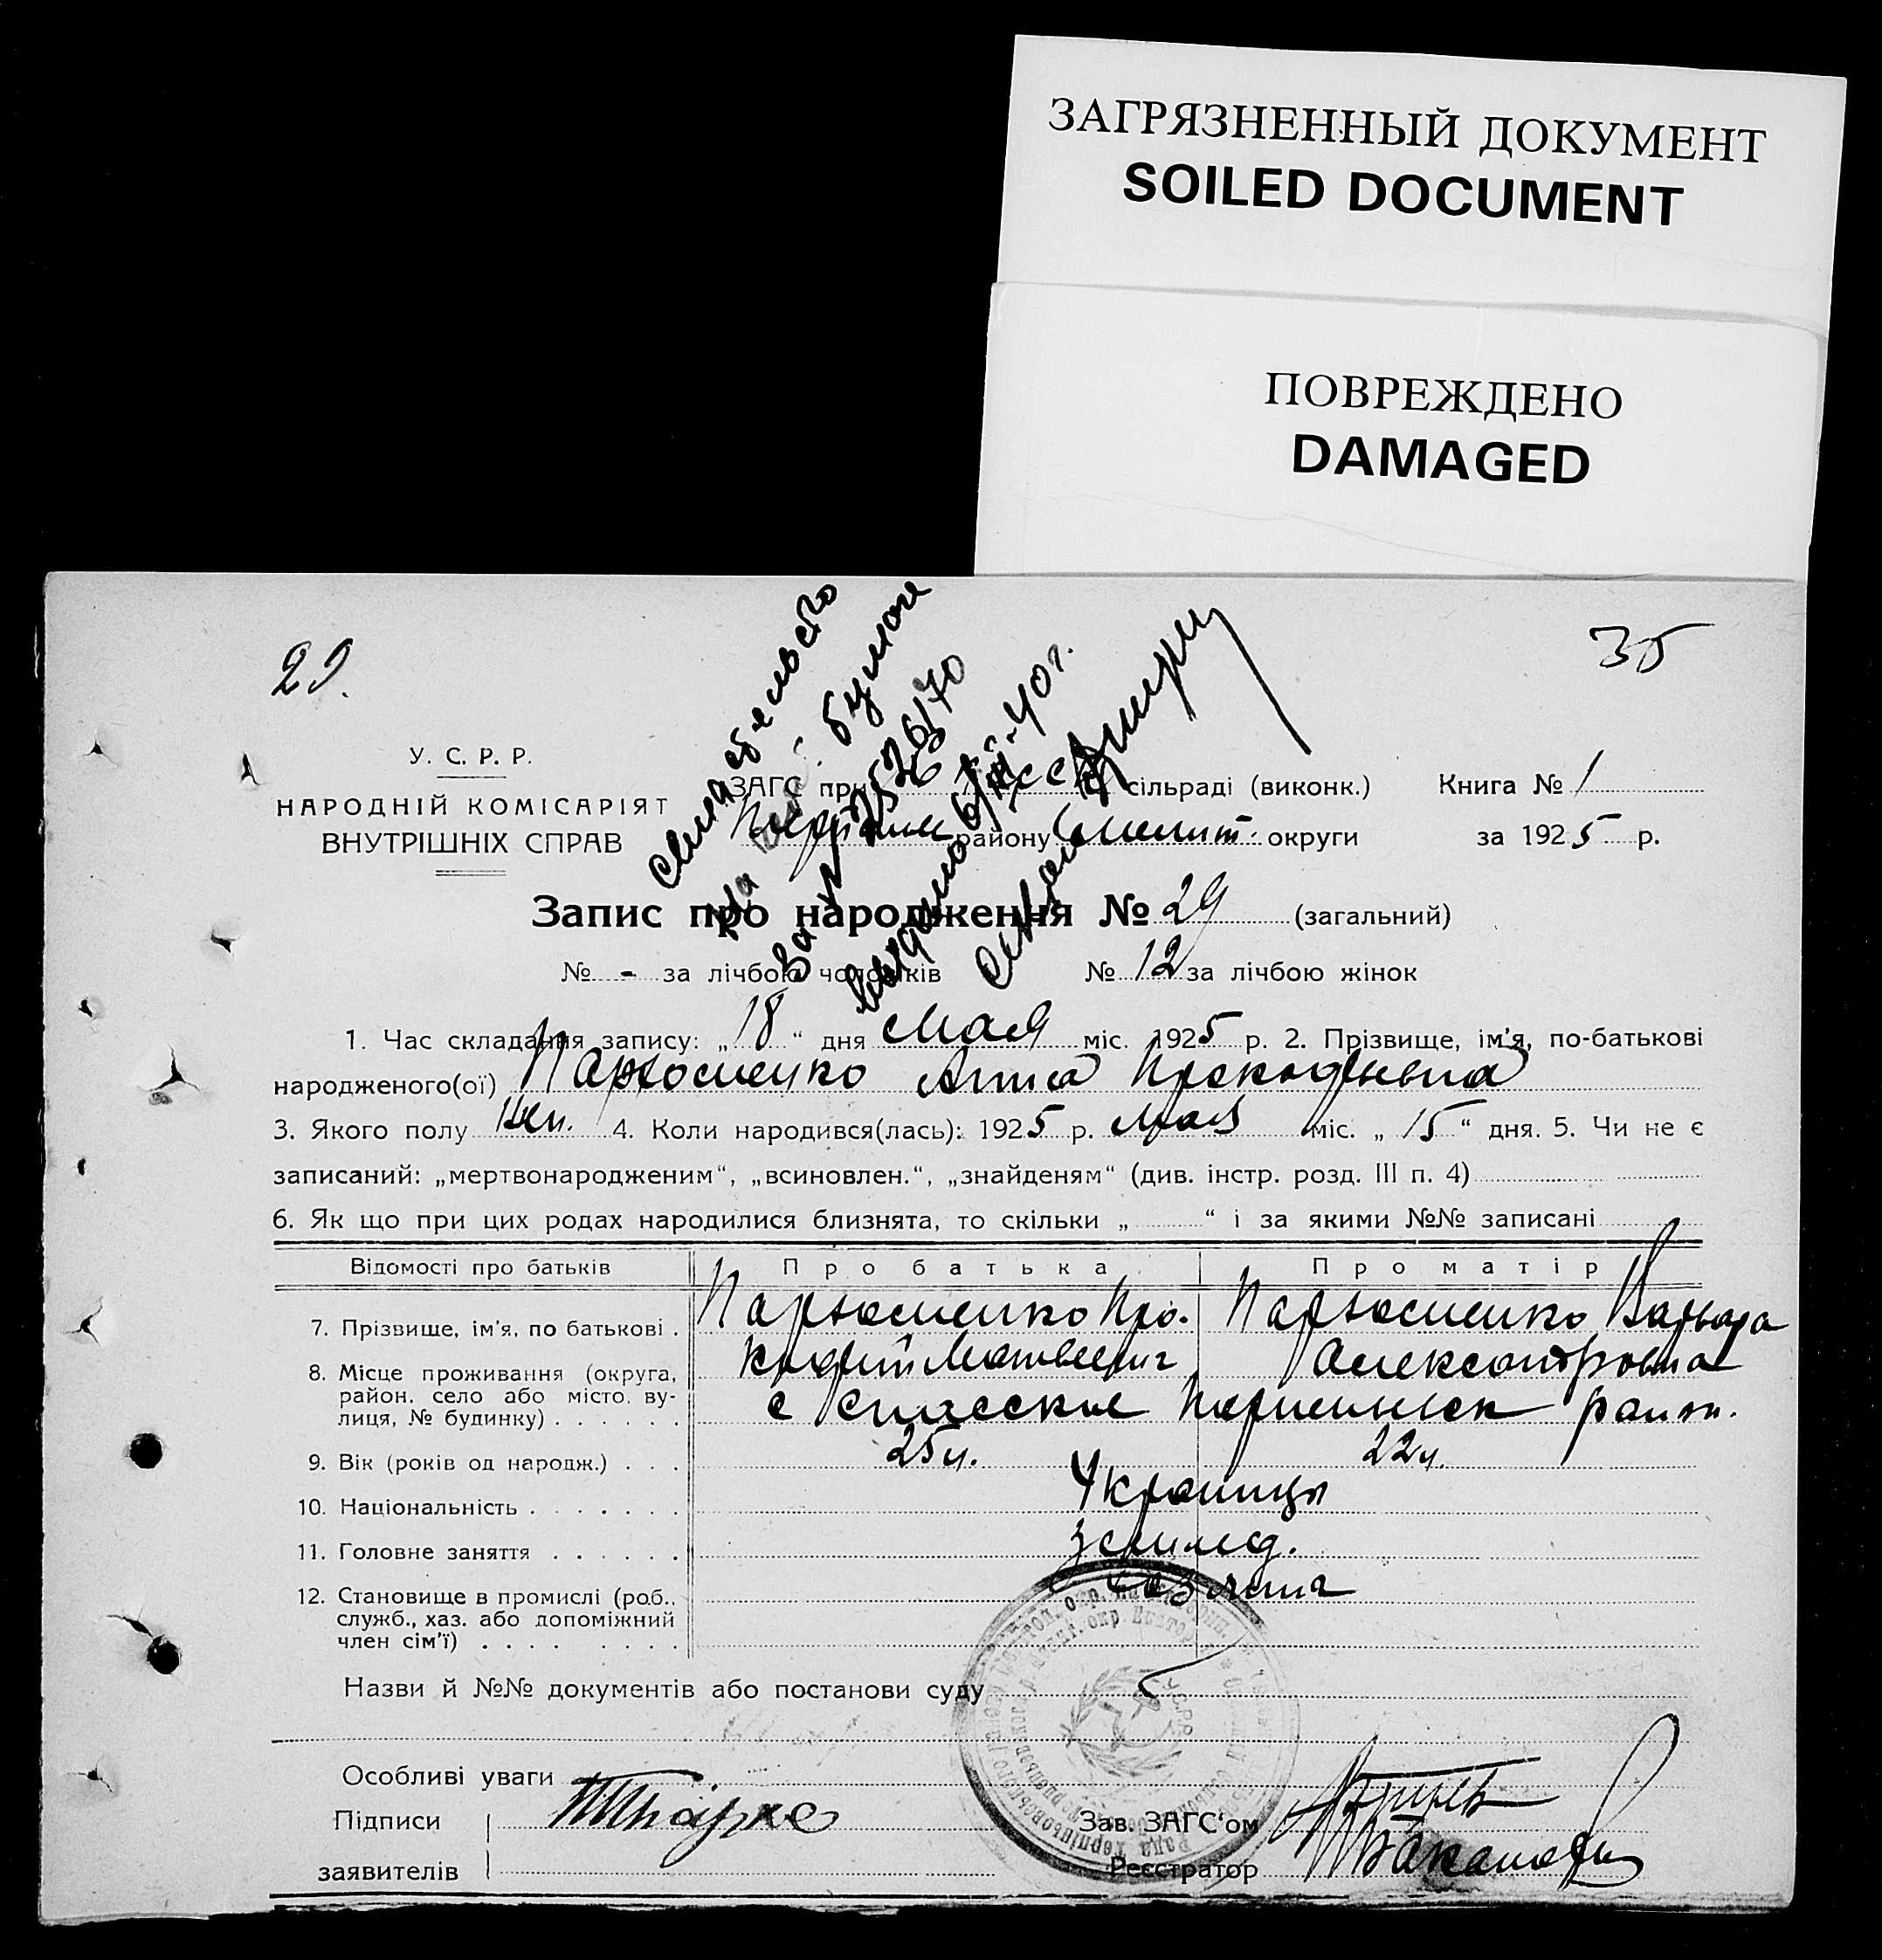 ЗАГРЯЗНЕННЫЙ ДОКУМЕНТ
SOILED DOCUMENT
ПОВРЕЖДЕНО
DAMAGED
29.
35
свидетельство
на бумаге
За № 2576170
выдано 6/III-40 г.
У. С. Р. Р.
НАРОДНІЙ КОМІСАРІЯТ
ВНУТРІШНІХ СПРАВ
ЗАГС при сільраді (виконк.) Книга № 1
району Мелит. округи за 1925 р.
Запис про народження № 29 (загальний)
№ - за лічбою чоловіків № 12 за лічбою жінок
1. Час складання запису: „18“ дня Мая міс. 1925 р. 2. Прізвище, ім'я, по-батькові
народженого(ої) Пархоменко Анна Прокофьевна
3. Якого полу жен. 4. Коли народився(лась): 1925 р. Мая міс. „15“ дня. 5. Чи не є
записаний: „мертвонародженим“, „всиновлен.“, „знайденям“ (див. інстр. розд. III п. 4)
6. Як що при цих родах народилися близнята, то скільки „ “ і за якими №№ записані
Відомості про батьків Про батька Про матір
7. Прізвище, ім'я, по батькові . Пархоменко Про- Пархоменко Варвара
кофий Матвеевич Александровна
8. Місце проживання (округа,
район, село або місто, ву-
лиця, № будинку) . . . . . . с Спасское район.
9. Вік (років од народж.) . . . 25 л. 22 л.
10. Національність . . . . . . . Украинцы
11. Головне заняття . . . . . . землед.
12. Становище в промислі (роб., хозяина
служб., хаз. або допоміжний
член сім'ї) . . . . . . . . .
Назви й №№ документів або постанови суду
У.С.Р.Р.
Особливі уваги
Підписи
заявителів
Зав. ЗАГС'ом
Реєстратор